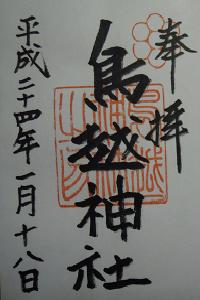 奉拝
鳥越神社
平成二十四年一月十八日